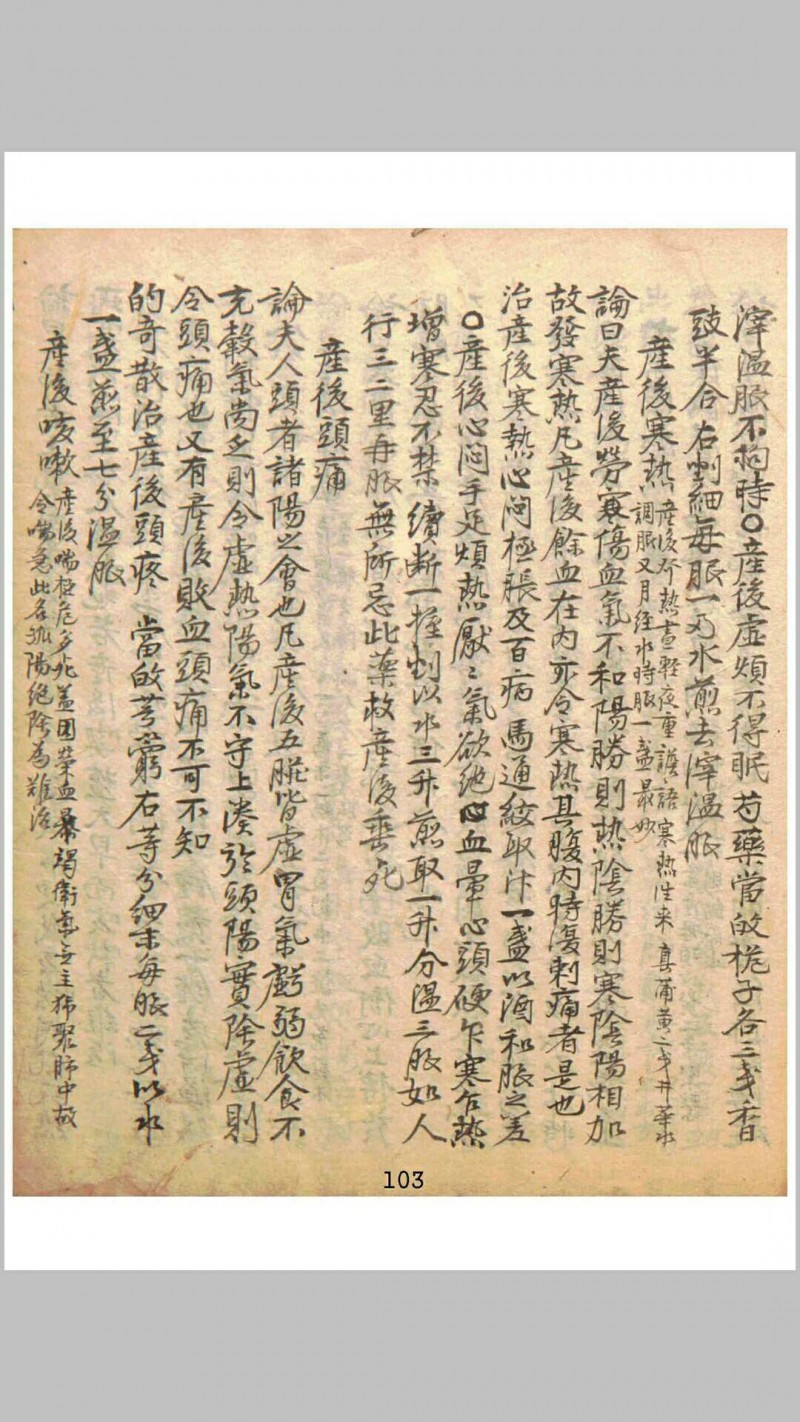 滓温服不拘時〇産後虚煩不得眠芍藥當皈梔子各三戔香
豉半合右剉細每服一刃水煎去滓温服
産後寒熱
産後乍熱晝輕夜重譫語寒熱往来真蒲黄二戔井華水
調服又月经水時服一盞最妙
論曰夫産後勞寒傷血氣不和陽勝則熱陰勝則寒陰陽相加
故發寒熱凡産後餘血在内亦令寒熱其腹内時復刺痛者是也
治産後寒熱心悶極脹及百病馬通絞取汁一盞以酒和服之差
〇産後心悶手足煩熱厭〻氣欲绝血暈心頭硬乍寒乍熱
增寒忍不禁續断一握剉以水三升煎取一升分温三服如人
行三二里再服無所忌此藥救産後垂死
産後頭痛
論夫人頭者諸陽之會也凡産後五臓皆虚胃氣虧弱飲食不
充穀氣尚乏則令虚熱陽氣不守上湊於頭陽實陰虚則
令頭痛也又有産後敗血頭痛不可不知
的奇散治産後頭疼當皈芎藭右等分细末每服二戔以水
一盞煎至七分温服
産後咳嗽
産後喘極危多死盖因荣血暴竭衛氣無主獨聚肺中故
令喘急此名孤陽绝陰為難治
103